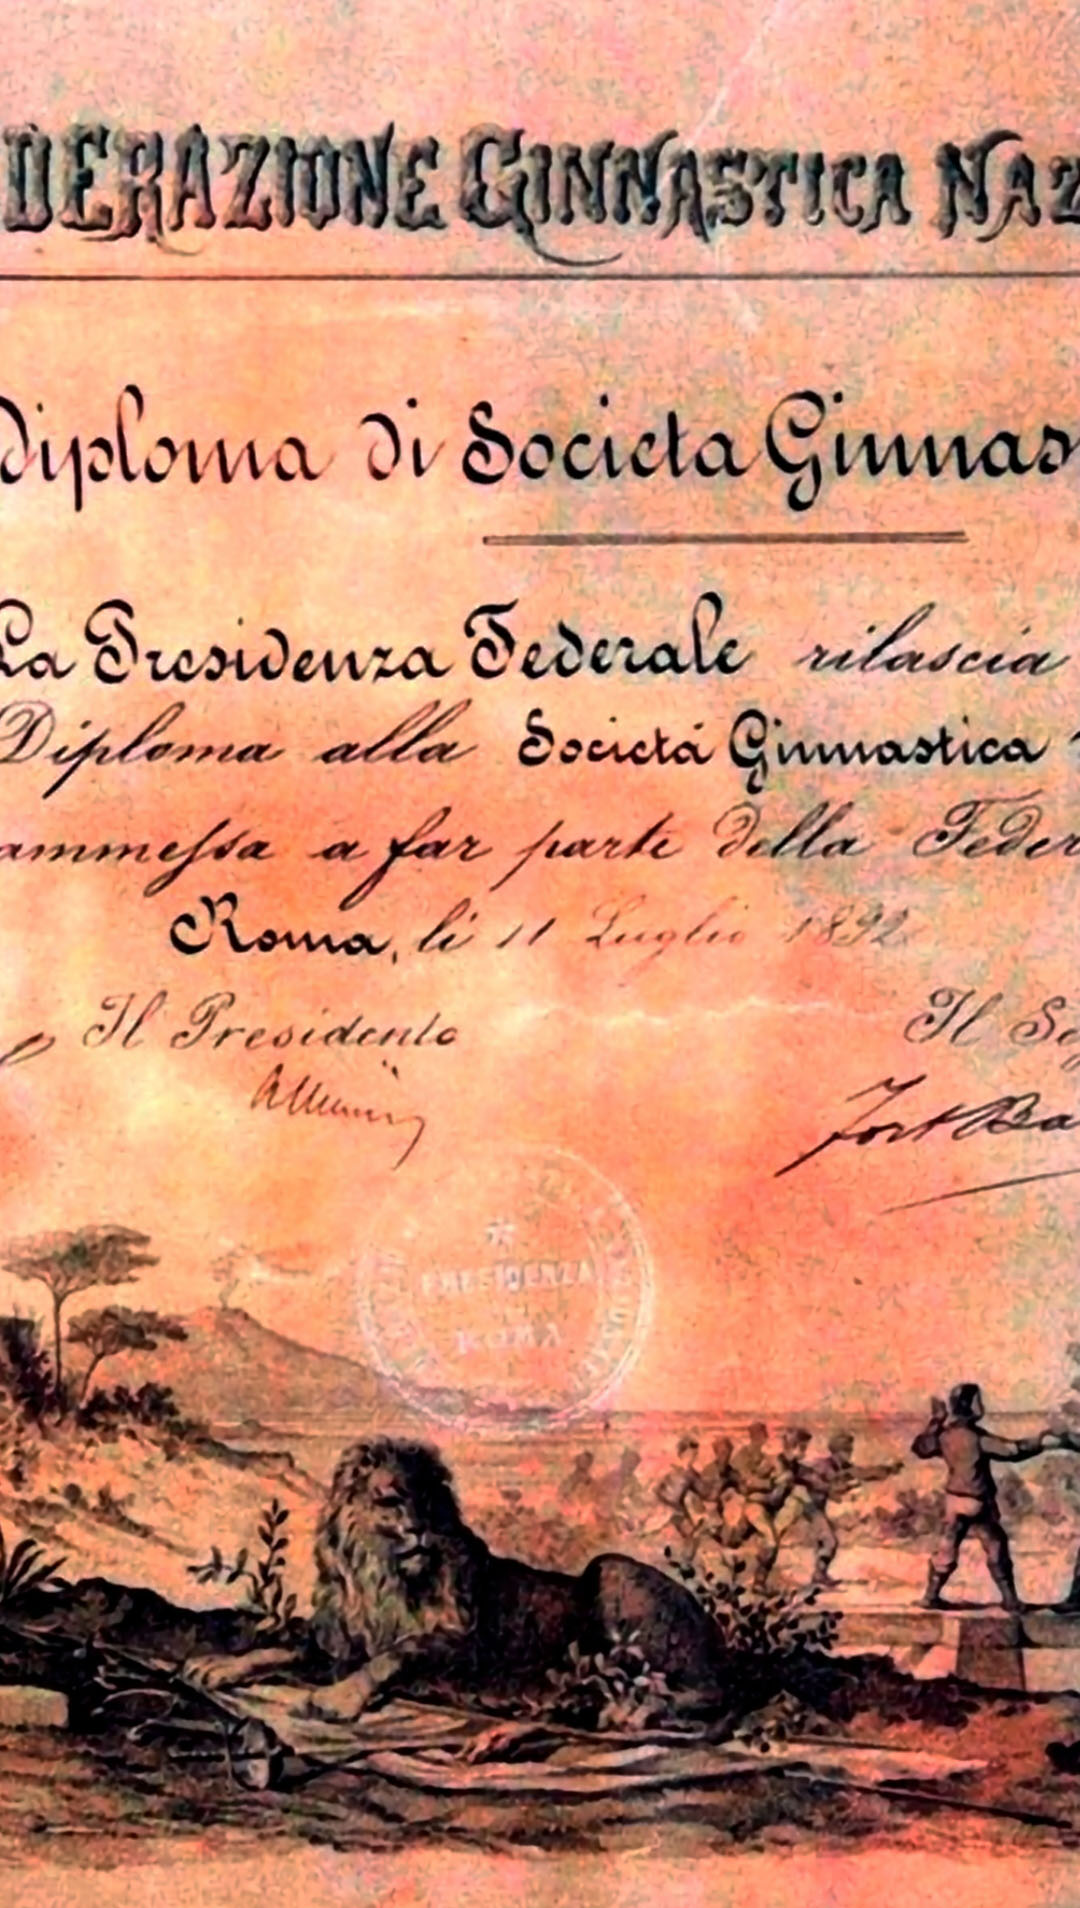 DERAZIONE GINNASTICA NAZ
Diploma di Societa Ginnas
La Presidenza Federale rilascia
Diploma alla Società Ginnastica
ammessa a far parte della Feder
Roma, li 11 Luglio 1892
Il Presidente
Il Seg
PRESIDENZA
ROMA